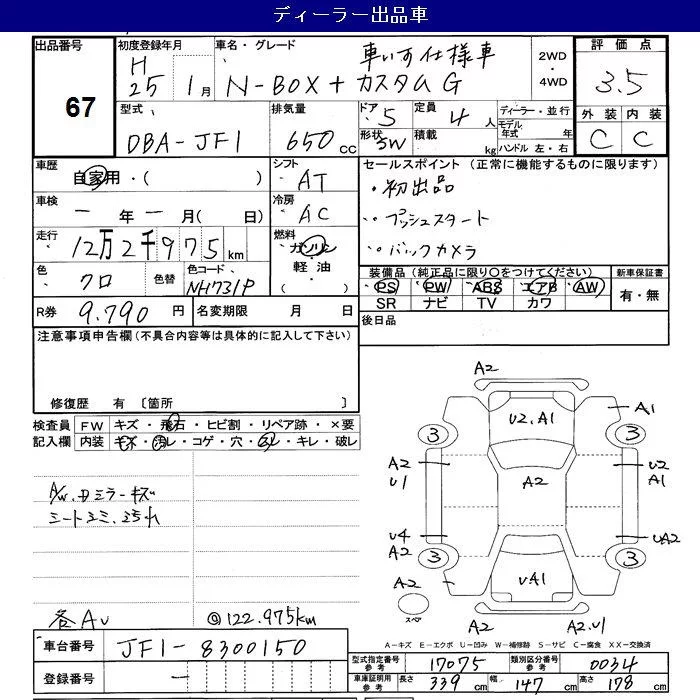 ディーラー出品車
出品番号
67
初度登録年月
H
25 1月
車名・グレード
車いす仕様車
N-BOX+ カスタム G
2WD
・
4WD
評価点
3.5
外装 内装
C C
型式
DBA-JF1
排気量
650 cc
ドア
5
定員
4人
形状
5W
積載
kg
ディーラー・並行
モデル年式 年
ハンドル 左・右
車歴
自家用・( )
シフト
AT
車検
ー年ー月( 日)
冷房
AC
走行
12万2千975km
燃料
・ガソリン
・軽油・
( )
色
クロ
色替
色コード
NH731P
R券
9.790円
名変期限 月 日
セールスポイント(正常に機能するものに限ります)
・初出品
・プッシュスタート
・バックカメラ
装備品(純正品に限り○をつけてください)
PS PW ABS エアB AW
SR ナビ TV カワ
新車保証書
有・無
後日品
注意事項申告欄(不具合内容等は具体的に記入して下さい)
修復歴 有 〔箇所 〕
検査員記入欄
FW キズ・飛石・ヒビ割・リペア跡・×要
内装 キズ・汚レ・コゲ・穴・スレ・キレ・破レ
A/W.Dミラーキズ
シートシミ.スレ
各AU
◎122.975km
A2
U2.A1
A1
3 3
A2
U1
A2
U2
A1
U4
A2
UA2
3 3
A2
UA1
スペア
A2
A2.U1
A-キズ E-エクボ U-凹み W-補修跡 S-サビ C-腐食 XX-交換済
車台番号
JF1-8300150
登録番号
ー
型式指定番号 参考
17075
類別区分番号 参考
0034
車庫証明用 参考
長さ 339cm 幅 147cm 高さ 178cm